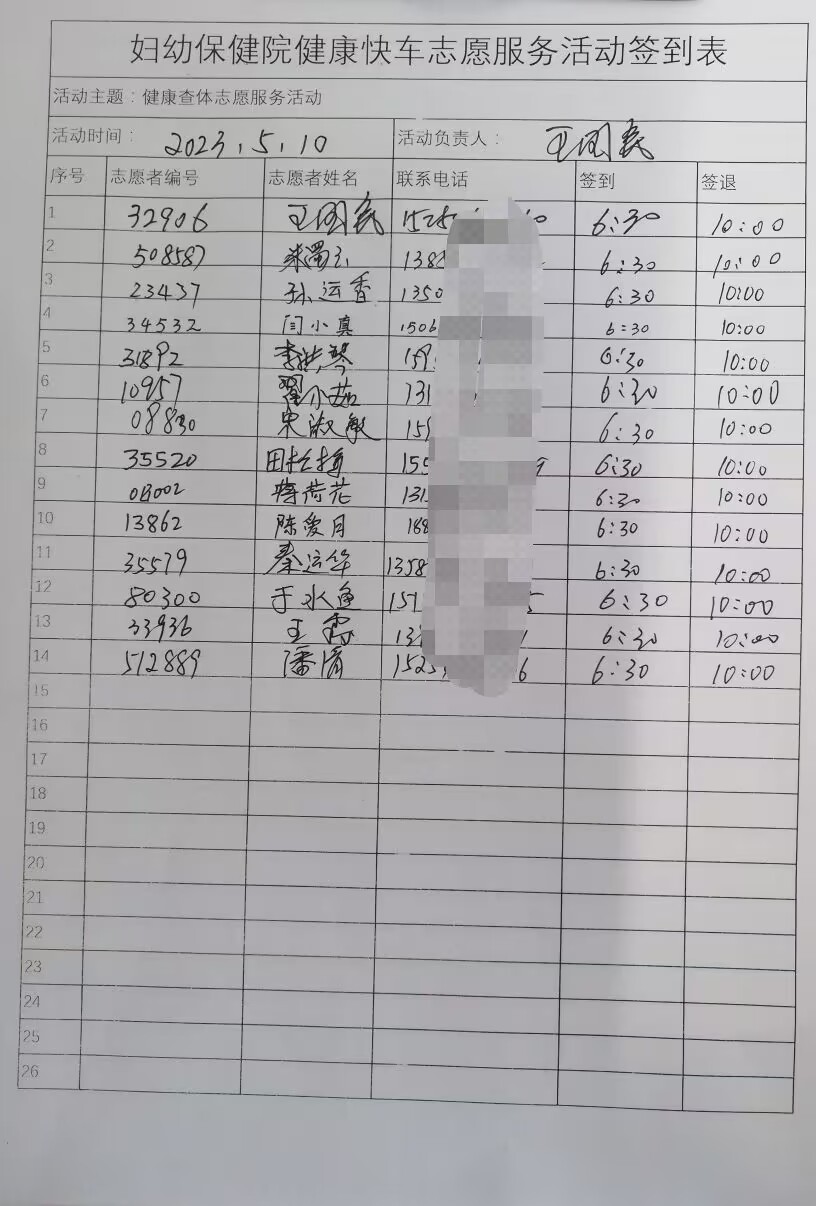 妇幼保健院健康快车志愿服务活动签到表
活动主题：健康查体志愿服务活动
活动时间： 2023.5.10 活动负责人： 王国民
序号 志愿者编号 志愿者姓名 联系电话 签到 签退
1 32906 王国民 6:30 10:00
2 508587 6:30 10:00
3 23437 孙运香 1350 6:30 10:00
4 34532 闫小真 1506 6:30 10:00
5 31892 李洪琴 6:30 10:00
6 10957 翟小茹 131 6:30 10:00
7 08830 宋淑敏 6:30 10:00
8 35520 155 6:30 10:00
9 荷花 131 6:30 10:00
10 13862 陈爱月 188 6:30 10:00
11 35579 秦运华 1358 6:30 10:00
12 80300 于水鱼 6:30 10:00
13 33936 王 6:30 10:00
14 512889 潘 6 6:30 10:00
15
16
17
18
19
20
21
22
23
24
25
26